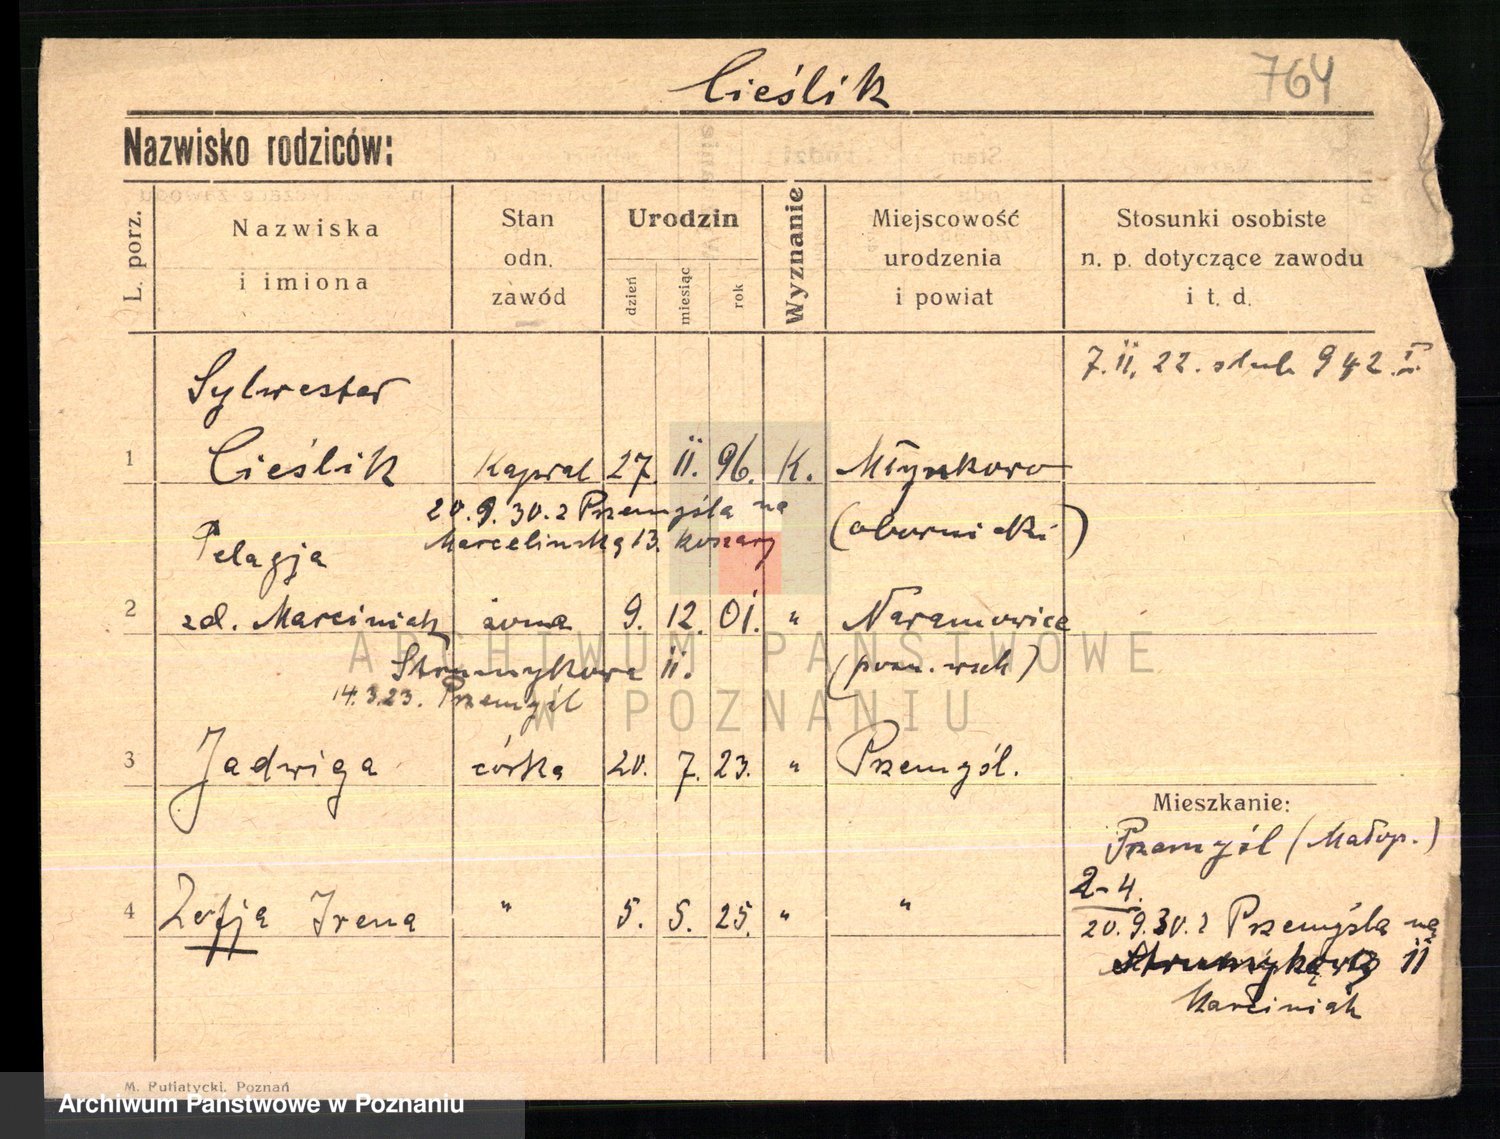 Cieślik
764
Nazwisko rodziców:
L. porz.
Nazwiska
i imiona
Stan
odn.
zawód
Urodzin
dzień
miesiąc
rok
Wyznanie
Miejscowość
urodzenia
i powiat
Stosunki osobiste
n. p. dotyczące zawodu
i t. d.
7. II. 22. ślub 942
Sylwester
1 Cieślik Kapral 27. II. 96. K. Młynkowo
20.9.30. z Przemyśla na (obornicki)
Marcelińską 13. Koszary
Pelagja
2 zd. Marciniak żona 9. 12. 01. " Naramowice
Strumykowa II. (pozn. wsch)
14.3.23. Przemyśl
3 Jadwiga córka 20. 7. 23. " Przemyśl.
Mieszkanie:
Przemyśl (Małop.)
2-4.
4 Zofja Irena " 5. 5. 25. " "
20.9.30. z Przemyśla na
Strumykową II
Marciniak
M. Putiatycki, Poznań
ARCHIWUM PAŃSTWOWE
W POZNANIU
Archiwum Państwowe w Poznaniu